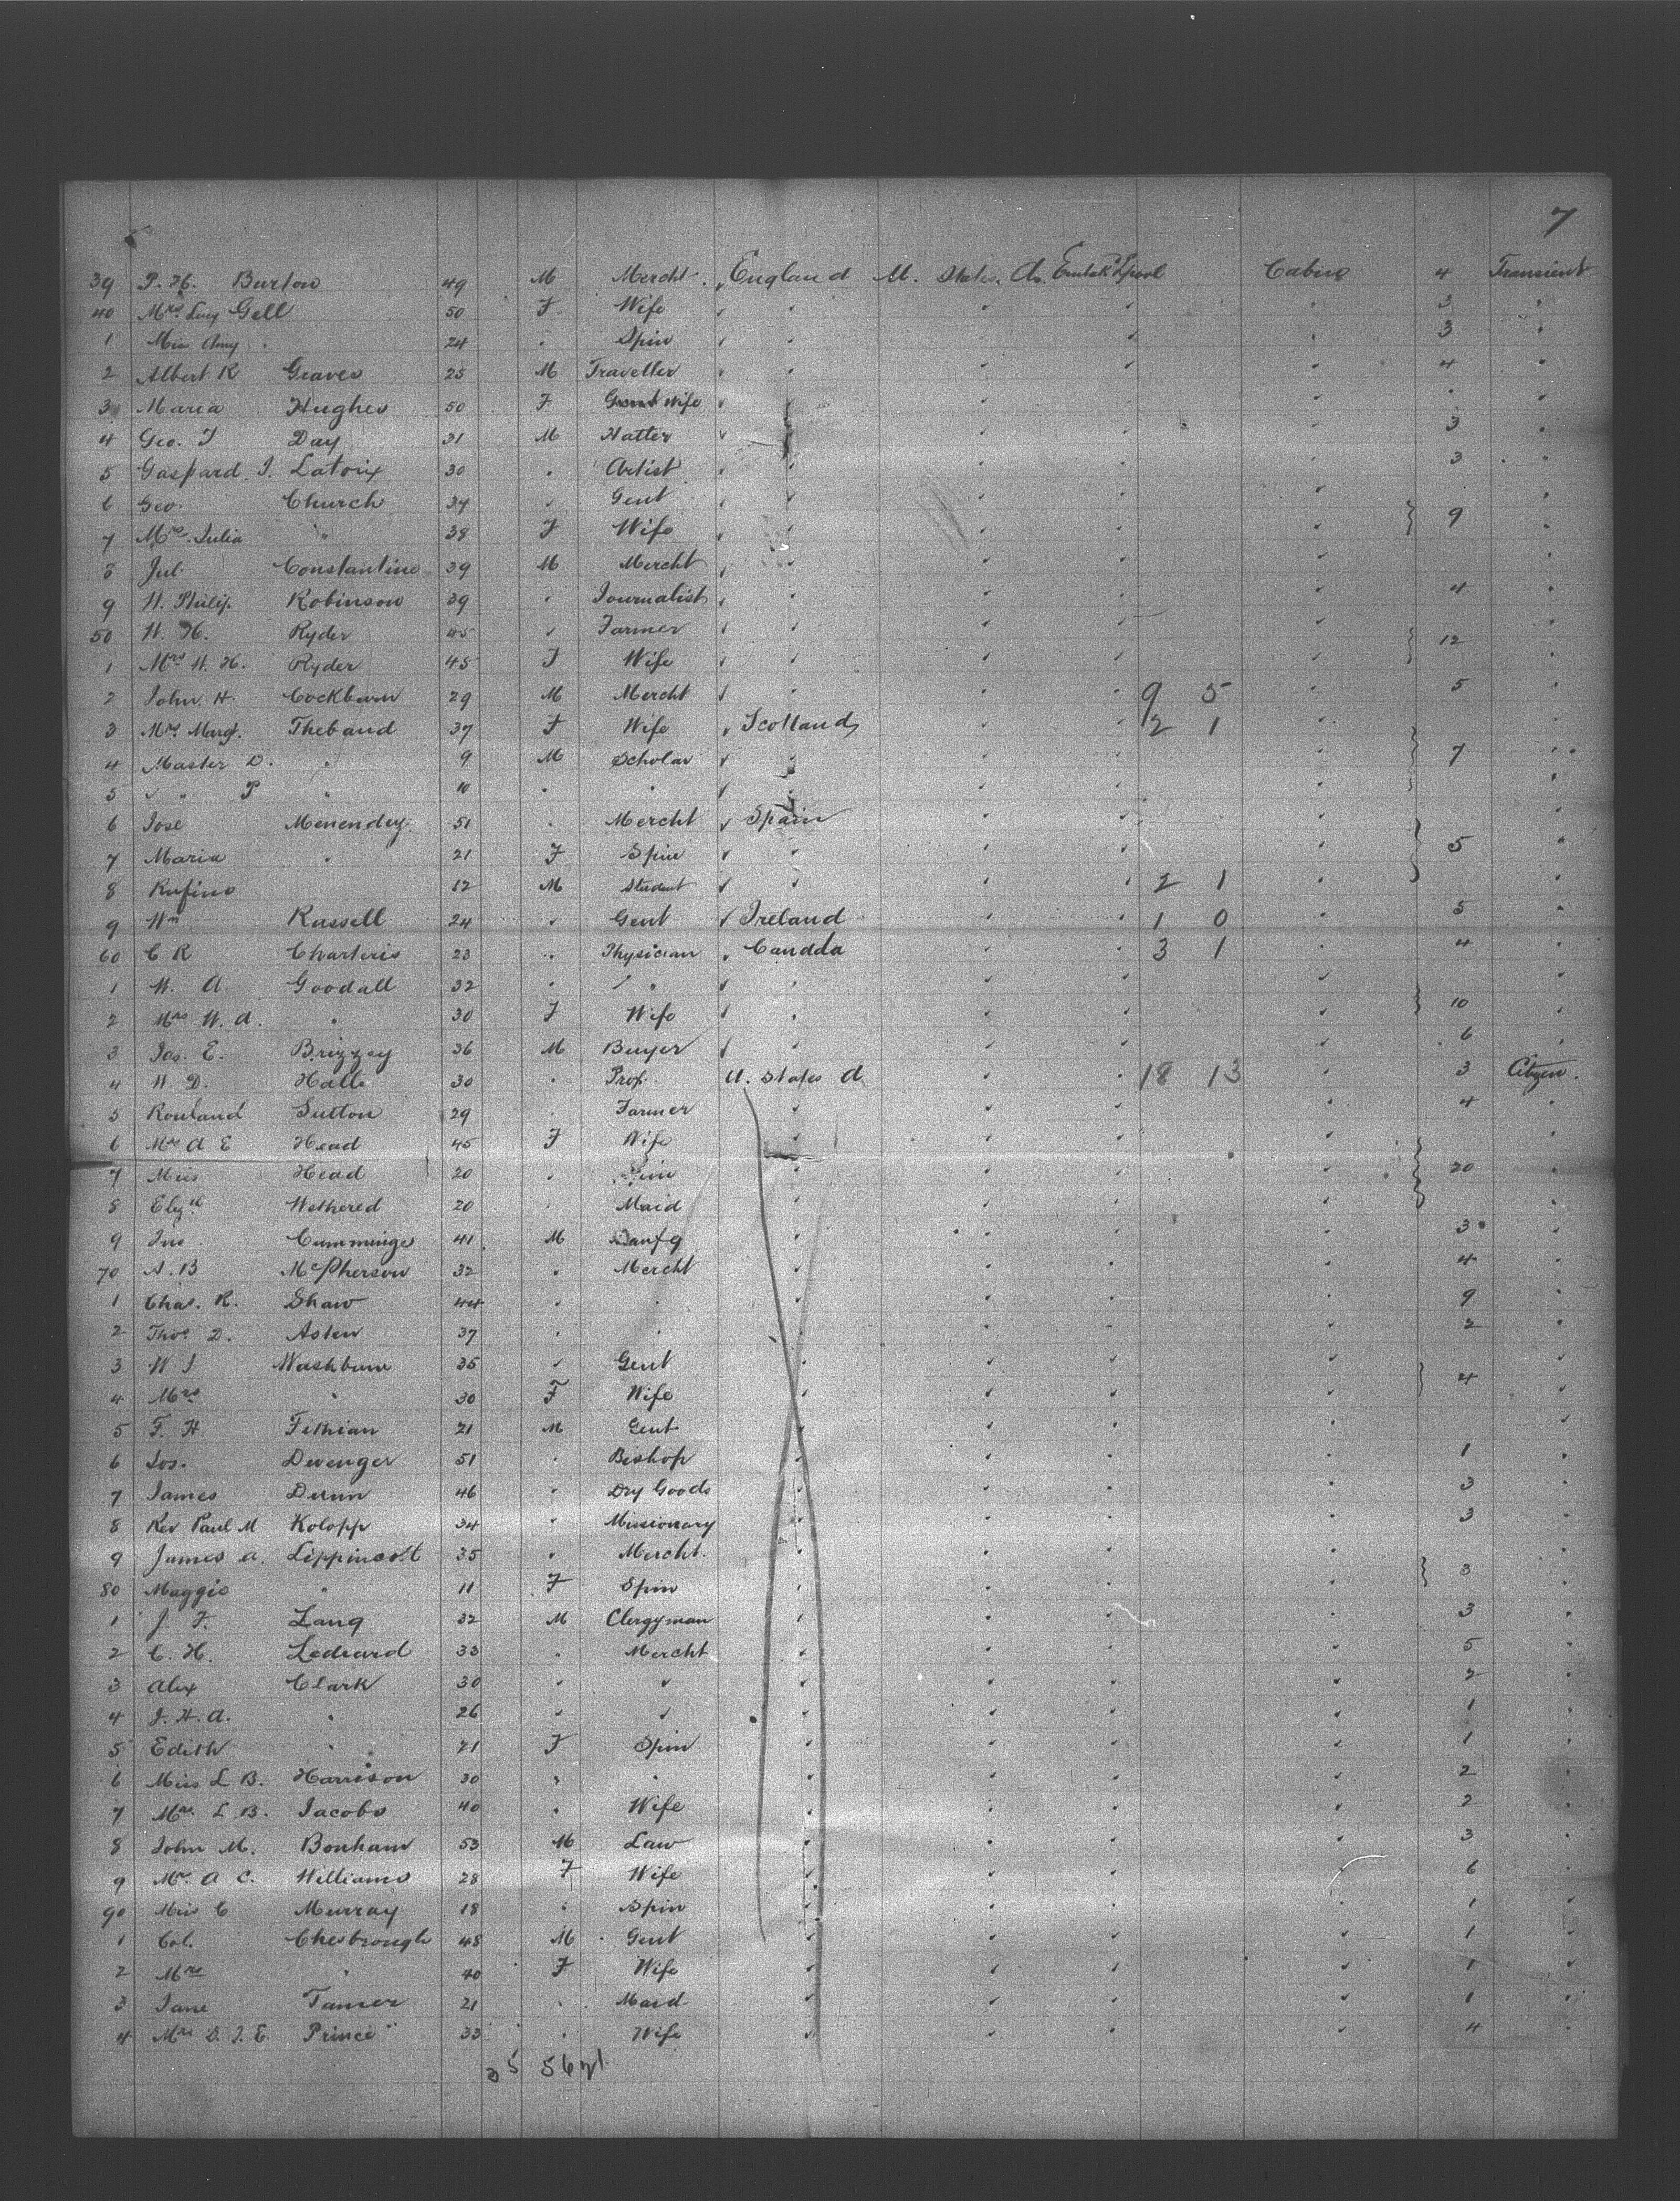 7
39 P. H. Burton 49 M Mercht. England U. States A. Embk L'pool Cabin 4 Transient
40 Mrs Lucy Gell 50 F Wife " " " " " 3 "
1 Miss Amy " 24 " Spin " " " " " 3 "
2 Albert R Graves 25 M Traveller " " " " " 4 "
3 Maria Hughes 50 F Wife " " " " " "
4 Geo. T Day 31 M Hatter " " " " " 3 "
5 Gaspard J. Latoix 30 " Artist " " " " 3 "
6 Geo. Church 34 " Gent " " " " "
7 Mrs. Julia " 38 F Wife " " " " } 9 "
8 Jul. Constantine 39 M Mercht " " " " "
9 H. Philip Robinson 39 " Journalist " " " " 4 "
50 W. H. Ryder 45 " Farmer " " " " "
1 Mrs W. H. Ryder 45 F Wife " " " " } 12 "
2 John H. Cockburn 29 M Mercht " " " 9 5 " 5 "
3 Mrs Margt. Theband 37 F Wife Scotland " " 2 1 " "
4 Master D. " 9 M Scholar " " " " } 7 "
5 " " P " 10 " " " " " " "
6 Jose Menendez 51 " Mercht Spain " " " "
7 Maria " 21 F Spin " " " " } 5 "
8 Rufino 12 M Student " " " 2 1 " "
9 Wm Russell 24 " Gent Ireland " " 1 0 " 5 "
60 C R Charteris 23 " Physician Canada " " 3 1 " 4 "
1 W. A. Goodall 32 " " " " " " "
2 Mrs W. A. " 30 F Wife " " " " } 10 "
3 Jas. E. Brizzey 36 M Buyer " " " " 6 "
4 W D. Hall 30 " Prof. U. States A " " 18 13 " 3 Citizen.
5 Rowland Sutton 29 " Farmer " " " " 4 "
6 Mrs A E Head 45 F Wife " " " " "
7 Miss Head 20 " Spin " " " " } 20 "
8 Elizth Wethered 20 " Maid " " " " "
9 Jno Cummings 41 M Manfg " " " " 3 "
70 A. B McPherson 32 " Mercht " " " " 4 "
1 Chas. R. Shaw 44 " " " " " " 9 "
2 Thos D. Asten 37 " " " " " " 2 "
3 W J Washburn 35 " Gent " " " " "
4 Mrs " 30 F Wife " " " " } 4 "
5 F. H Fithian 21 M Gent " " " " "
6 Jos. Dwenger 51 " Bishop " " " " 1 "
7 James Dunn 46 " Dry Goods " " " " 3 "
8 Rev Paul M Kolopp 34 " Missionary " " " " 3 "
9 James A. Lippincott 35 " Mercht. " " " " "
80 Maggie " 11 F Spin " " " " } 3 "
1 J. F. Lang 32 M Clergyman " " " " 3 "
2 C. H. Ledward 33 " Mercht " " " " 5 "
3 Alex Clark 30 " " " " " " 2 "
4 J. H. A. " 26 " " " " " " 1 "
5 Edith " 21 F Spin " " " " 1 "
6 Miss L B. Harrison 30 " " " " " " 2 "
7 Mrs. L B. Jacobs 40 " Wife " " " " 2 "
8 John M. Bonham 53 M Law " " " " 3 "
9 Mrs A C. Williams 28 F Wife " " " " 6 "
90 Miss C Murray 18 " Spin " " " " 1 "
1 Col. Chesbrough 48 M Gent " " " " 1 "
2 Mrs " 40 F Wife " " " " 1 "
3 Jane Tanner 21 " Maid " " " " 1 "
4 Mrs D. J. E. Prince 33 " Wife " " " " 4 "
35 56 21